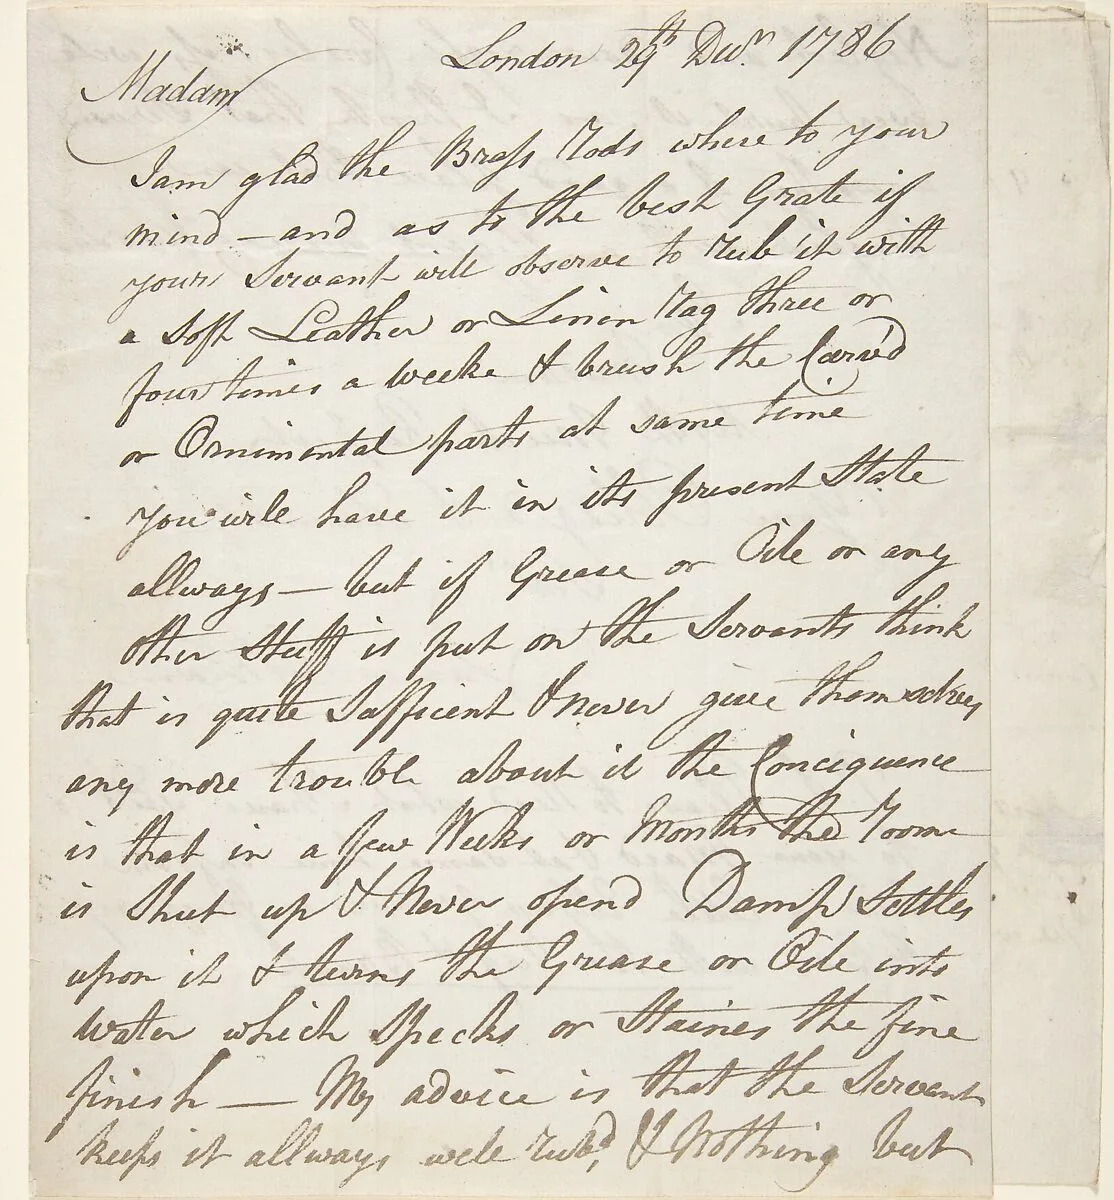 London 29th Decr. 1786
Madam
I am glad the Brass Rods where to your
mind – and as to the best Grate if
your Servant will observe to rub it with
a soft Leather or Linin Rag three or
four times a weeke & brush the Carv'd
or Ornimental parts at same time
you will have it in its present State
allways – but if Grease or Oile or any
other Stuff is put on the Servants think
that is quite Sufficent & never give themselves
any more trouble about it the Conciquence
is that in a few Weeks or Months the Room
is Shut up & Never opend Damp Settles
upon it & turns the Grease or Oile into
water which Specks or Staines the fine
finish — My advice is that the Servant
keeps it allways well rubd, & Nothing but